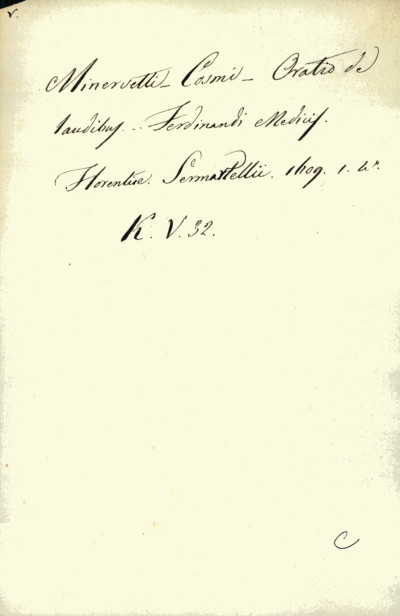 v.
Minervetti – Cosmi – Oratio de
laudibus... Ferdinandi Medicis.
Florentiae. Sermartellii. 1609. 1. 4°.
K. V. 32.
C